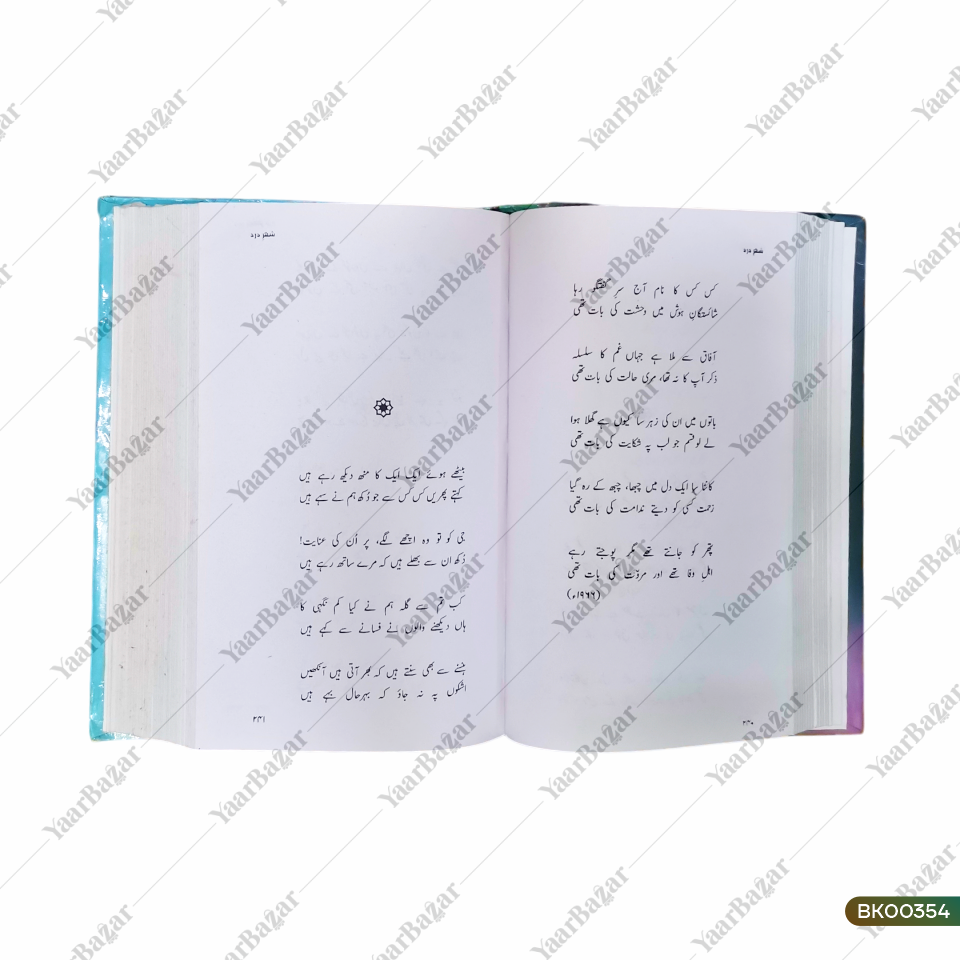 شہرِ درد
کس کس کا نام آج سرِ گفتگو رہا
شائستگانِ ہوش میں وحشت کی بات تھی
آفاق سے ملا ہے جہاں غم کا سلسلہ
ذکر آپ کا نہ تھا، مری حالت کی بات تھی
باتوں میں ان کی زہر سا کیوں ہے گھلا ہوا
لے لو قسم جو لب پہ شکایت کی بات تھی
کانٹا سا ایک دل میں چبھا، چبھ کے رہ گیا
زحمت کسی کو دیتے ندامت کی بات تھی
پتھر کو جانتے تھے مگر پوجتے رہے
اہلِ وفا تھے اور مروّت کی بات تھی
(۱۹۶۶ء)
۲۴۰
شہرِ درد
بیٹھے ہوئے ایک ایک کا منھ دیکھ رہے ہیں
کہتے پھریں کس کس سے جو دُکھ ہم نے سہے ہیں
جی کو تو وہ اچھے لگے، پر اُن کی عنایت!
دُکھ ان سے بھلے ہیں کہ مرے ساتھ رہے ہیں
کب تم سے گلہ ہم نے کیا کم نگہی کا
ہاں دیکھنے والوں نے فسانے سے کہے ہیں
ہنسنے سے بھی سنتے ہیں کہ بھر آتی ہیں آنکھیں
اشکوں پہ نہ جاؤ کہ بہرحال بہے ہیں
۲۴۱
YaarBazar
BK00354